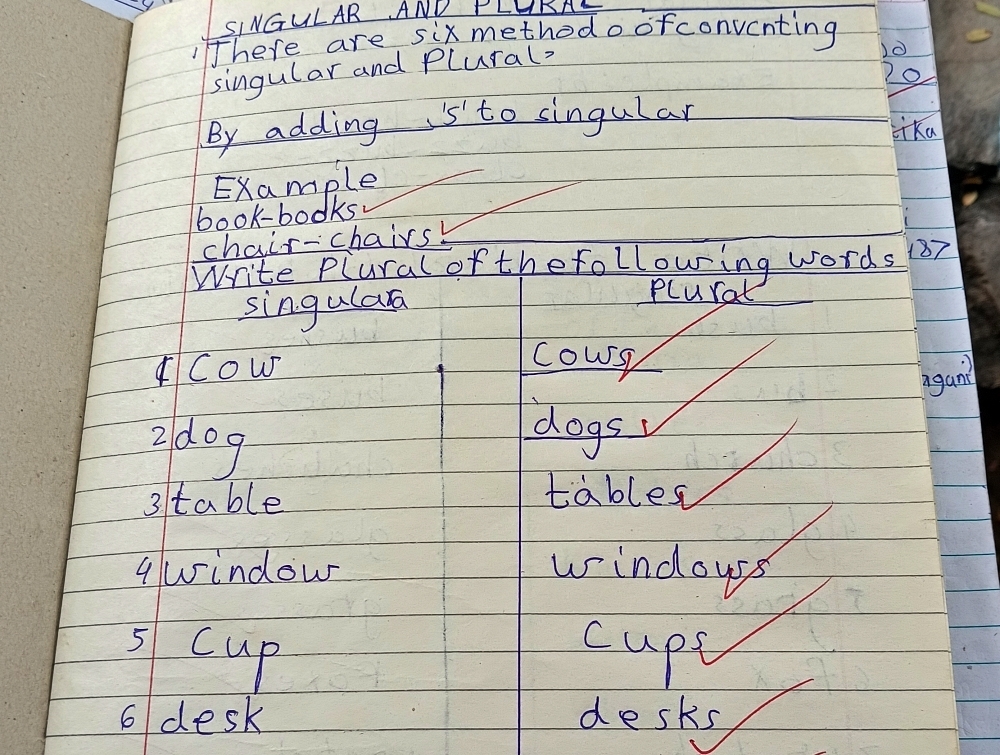 SINGULAR AND PLURAL
There are six method o of convcnting
singular and Plural
By adding 's' to singular
Example
book-books
chair-chairs
Write Plural of the following words
singulara Plural
1 Cow Cows
2 dog dogs
3 table tables
4 window windows
5 Cup Cups
6 desk desks